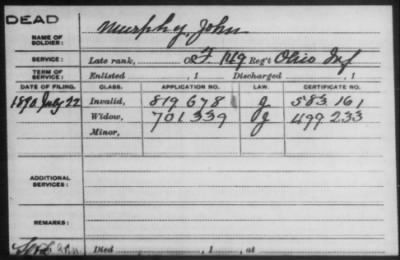 DEAD
NAME OF SOLDIER: Murphy, John
SERVICE: Late rank, Co F. 149 Reg't Ohio Inf
TERM OF SERVICE: Enlisted , 1 Discharged , 1
DATE OF FILING. CLASS. APPLICATION NO. LAW. CERTIFICATE NO.
1890 July 22 Invalid, 819678 J 583161
Widow, 701339 J 499233
Minor,
ADDITIONAL SERVICES:
REMARKS:
Died , 1 , at